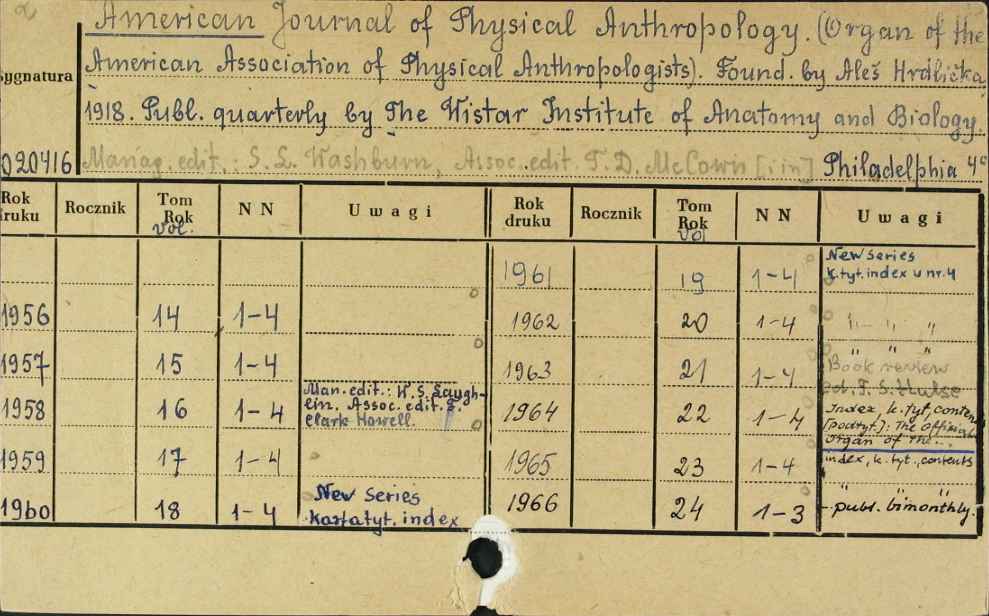 American Journal of Physical Anthropology. (Organ of the
American Association of Physical Anthropologists). Found. by Aleš Hrdlička
1918. Publ. quarterly by The Wistar Institute of Anatomy and Biology.
Manag. edit.: S. L. Washburn, Assoc. edit. T. D. McCown [i in] Philadelphia 4°
ygnatura
020416
Rok druku Rocznik Tom Rok Vol. NN Uwagi Rok druku Rocznik Tom Rok Vol NN Uwagi
1961 19 1-4 New series K. tyt. index u nr. 4
1956 14 1-4 1962 20 1-4 " " "
1957 15 1-4 1963 21 1-4 " " " Book review ed. F. S. Hulse
1958 16 1-4 Man. edit.: W. S. Laughlin. Assoc. edit. Clark Howell. 1964 22 1-4 Index, k. tyt, conten [podtyt.]: The official organ of the...
1959 17 1-4 1965 23 1-4 index, k. tyt., contents
1960 18 1-4 New series Karta tyt. index 1966 24 1-3 " " " - publ. bimonthly.